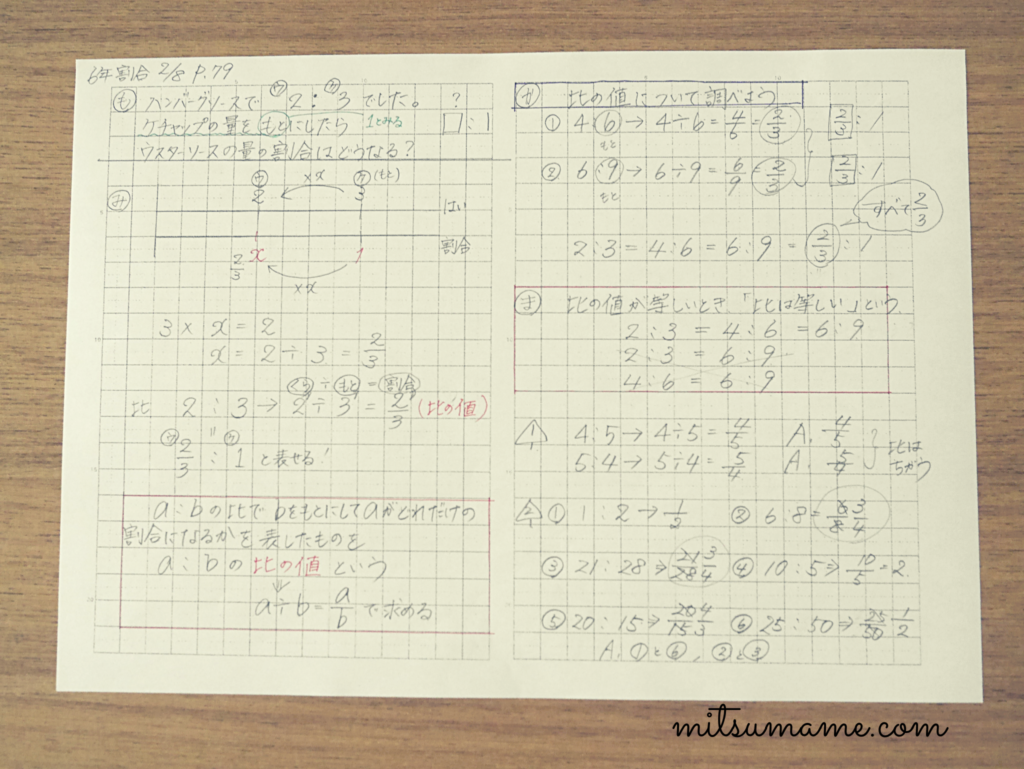 6年割合 2/8 P.79
も ハンバーグソースで ウ2:ケ3 でした。 ?
ケチャップの量をもとにしたら 1とみる □:1
ウスターソースの量の割合はどうなる?
×x
み ウ2 ケ3(もと)
はい
割合
2/3 x 1
×x
3 × x = 2
x = 2 ÷ 3 = 2/3
くら ÷ もと = 割合
比 2 : 3 → 2 ÷ 3 = 2/3 (比の値)
ウ = ケ
2/3 : 1 と表せる!
a : b の比で bをもとにしてaがどれだけの
割合になるかを表したものを
a : b の 比の値 という
↓
a÷b = a/b で求める
か 比の値について調べよう
① 4:6 → 4÷6 = 4/6 = 2/3 2/3 : 1
もと
② 6:9 → 6÷9 = 6/9 = 2/3 2/3 : 1
もと
すべて2/3
2:3 = 4:6 = 6:9 = 2/3 : 1
ま 比の値が等しいとき「比は等しい」という
2:3 = 4:6 = 6:9
2:3 = 6:9
4:6 = 6:9
1 4:5 → 4÷5 = 4/5 A. 4/5
5:4 → 5÷4 = 5/4 A. 5/4 比はちがう
2 ① 1:2 → 1/2 ② 6:8 = 6/8 3/4
③ 21:28 ⇒ 21/28 3/4 ④ 10:5 ⇒ 10/5 = 2
⑤ 20:15 ⇒ 20/15 4/3 ⑥ 25:50 ⇒ 25/50 1/2
A. ①と⑥, ②と③
mitsumame.com